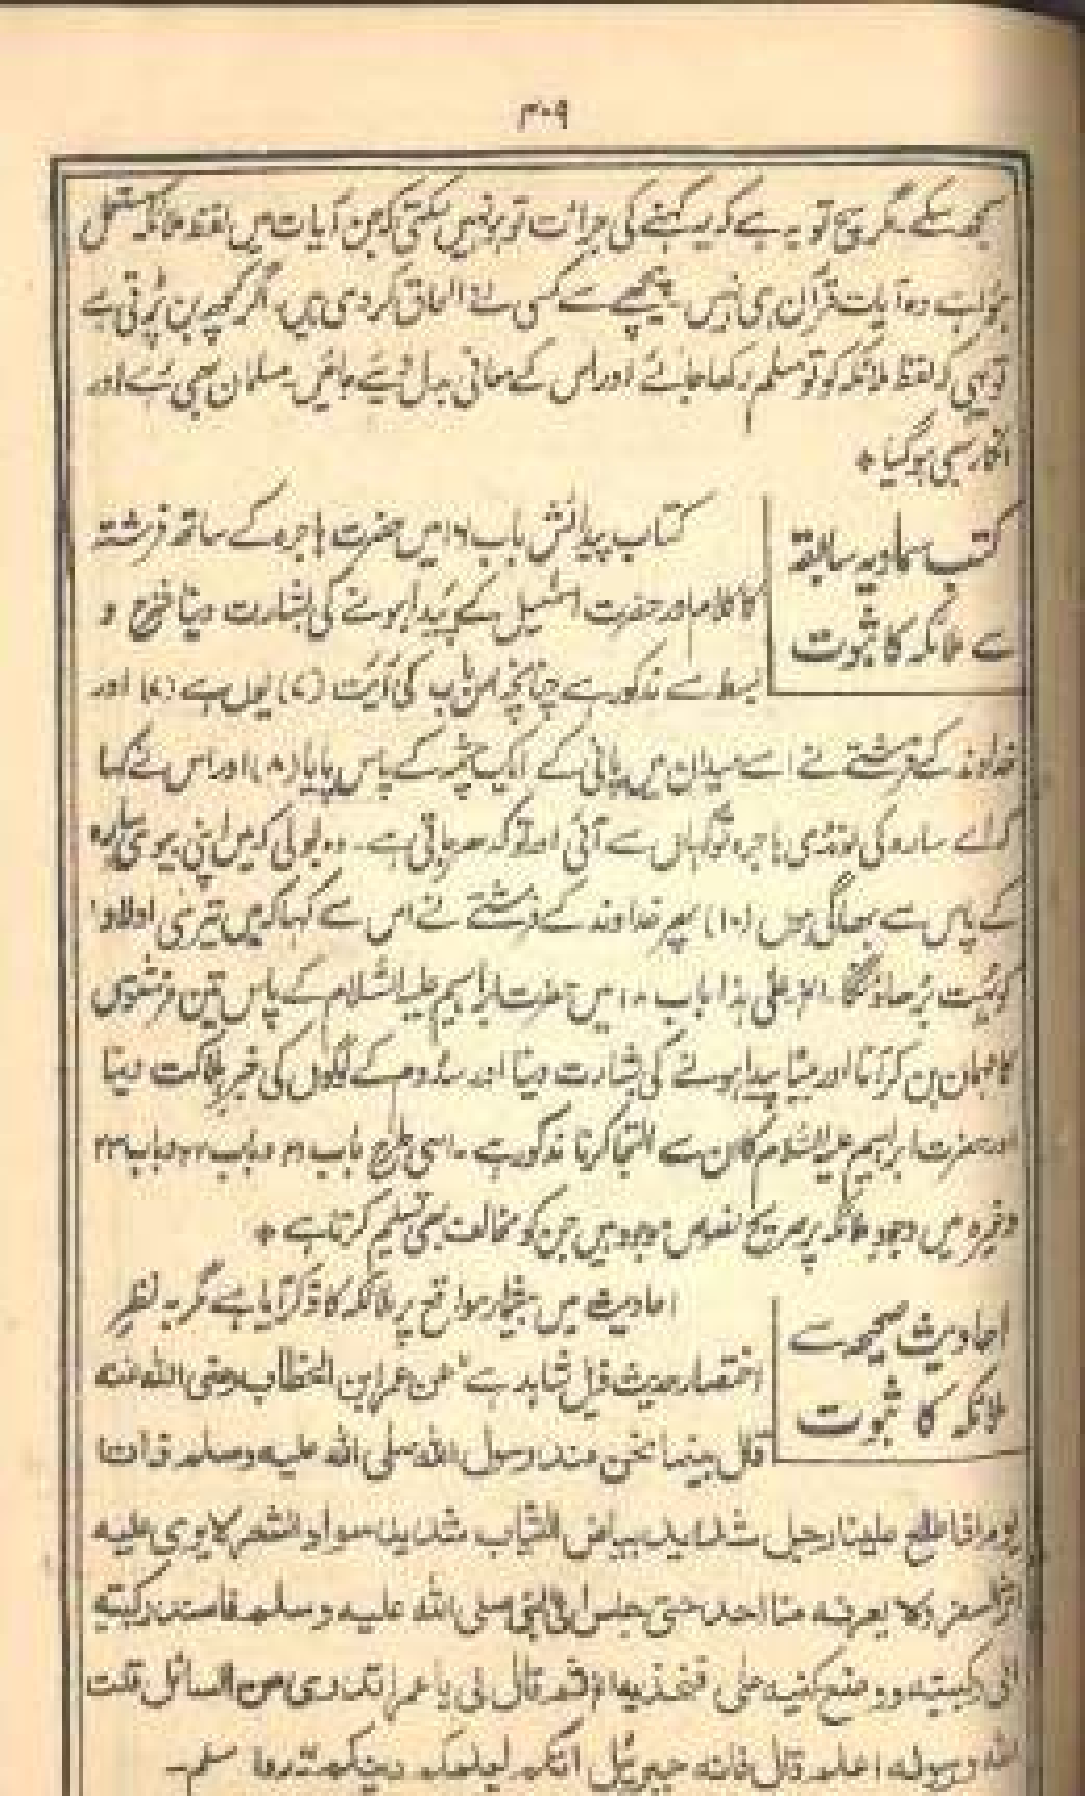 ۳۰۹
سمجھ سکے۔ مگر سچ تو یہ ہے کہ یہ کہنے کی جرائت تو ہو نہیں سکتی کہ جن آیات میں لفظ ملائکہ مستعمل
ہؤا ہے وہ آیات قرآن ہی نہیں۔ پیچھے سے کسی نے الحاق کر دی ہیں، اگر کچھ بن پڑتی ہے
تو یہی کہ لفظ ملائکہ کو تو مسلم رکھا جائے اور اس کے معانی بدل دئیے جائیں۔ مسلمان بھی رہے اور
انکار بھی ہو گیا *
کتب سماویہ سابقہ
سے ملائکہ کا ثبوت
کتاب پیدائش باب ۱۶ میں حضرت ہاجرہ کے ساتھ فرشتہ
کا کلام اور حضرت اسمٰعیل کے پیدا ہونے کی بشارت دینا و
بسط سے مذکور ہے چنانچہ اس باب کی آیت (۷) یوں ہے (۷) اور
خداوند کے فرشتے نے اسے میدان میں پانی کے ایک چشمہ کے پاس پایا (۸) اور اس نے کہا
کہ اے سارہ کی لونڈی ہاجرہ تو کہاں سے آئی اور تو کدھر جاتی ہے۔ وہ بولی کہ میں اپنی بیوی سارہ
کے پاس سے بھاگی ہوں (۱۰) پھر خداوند کے فرشتے نے اس سے کہا کہ میں تیری اولاد
کو بہت بڑھاؤنگا۔ الخ علی ہذا باب ۱۸ میں حضرت ابراہیم علیہ السلام کے پاس تین فرشتوں
کا مہمان بن کر آنا اور بیٹا پیدا ہونے کی بشارت دینا اور سدوم کے لوگوں کی خبر ہلاکت دینا
اور حضرت ابراہیم علیہ السلام کا ان سے التجا کرنا مذکور ہے۔ اسی طرح باب ۲۱ و باب ۲۲ و باب ۲۴
وغیرہ میں وجود ملائکہ پر صریح نصوص موجود ہیں جن کو مخالف بھی تسلیم کرتا ہے *
احادیث صحیحہ سے
ملائکہ کا ثبوت
احادیث میں بیشمار مواقع پر ملائکہ کا ذکر آیا ہے مگر بہ نظر
اختصار حدیث ذیل شاہد ہے عن عمر ابن الخطاب رضی اللہ عنہ
قال بینما نحن عند رسول اللہ صلی اللہ علیہ وسلم ذات
یوم اذ طلع علینا رجل شدید بیاض الثیاب شدید سواد الشعر لا یری علیہ
اثر السفر ولا یعرفہ منا احد حتی جلس الی النبی صلی اللہ علیہ وسلم فاسند رکبتیہ
الی رکبتیہ ووضع کفیہ علی فخذیہ الخ قال لی یا عمر اتدری من السائل قلت
اللہ ورسولہ اعلم قال فانہ جبرئیل اتکم یعلمکم دینکم رواہ مسلم۔